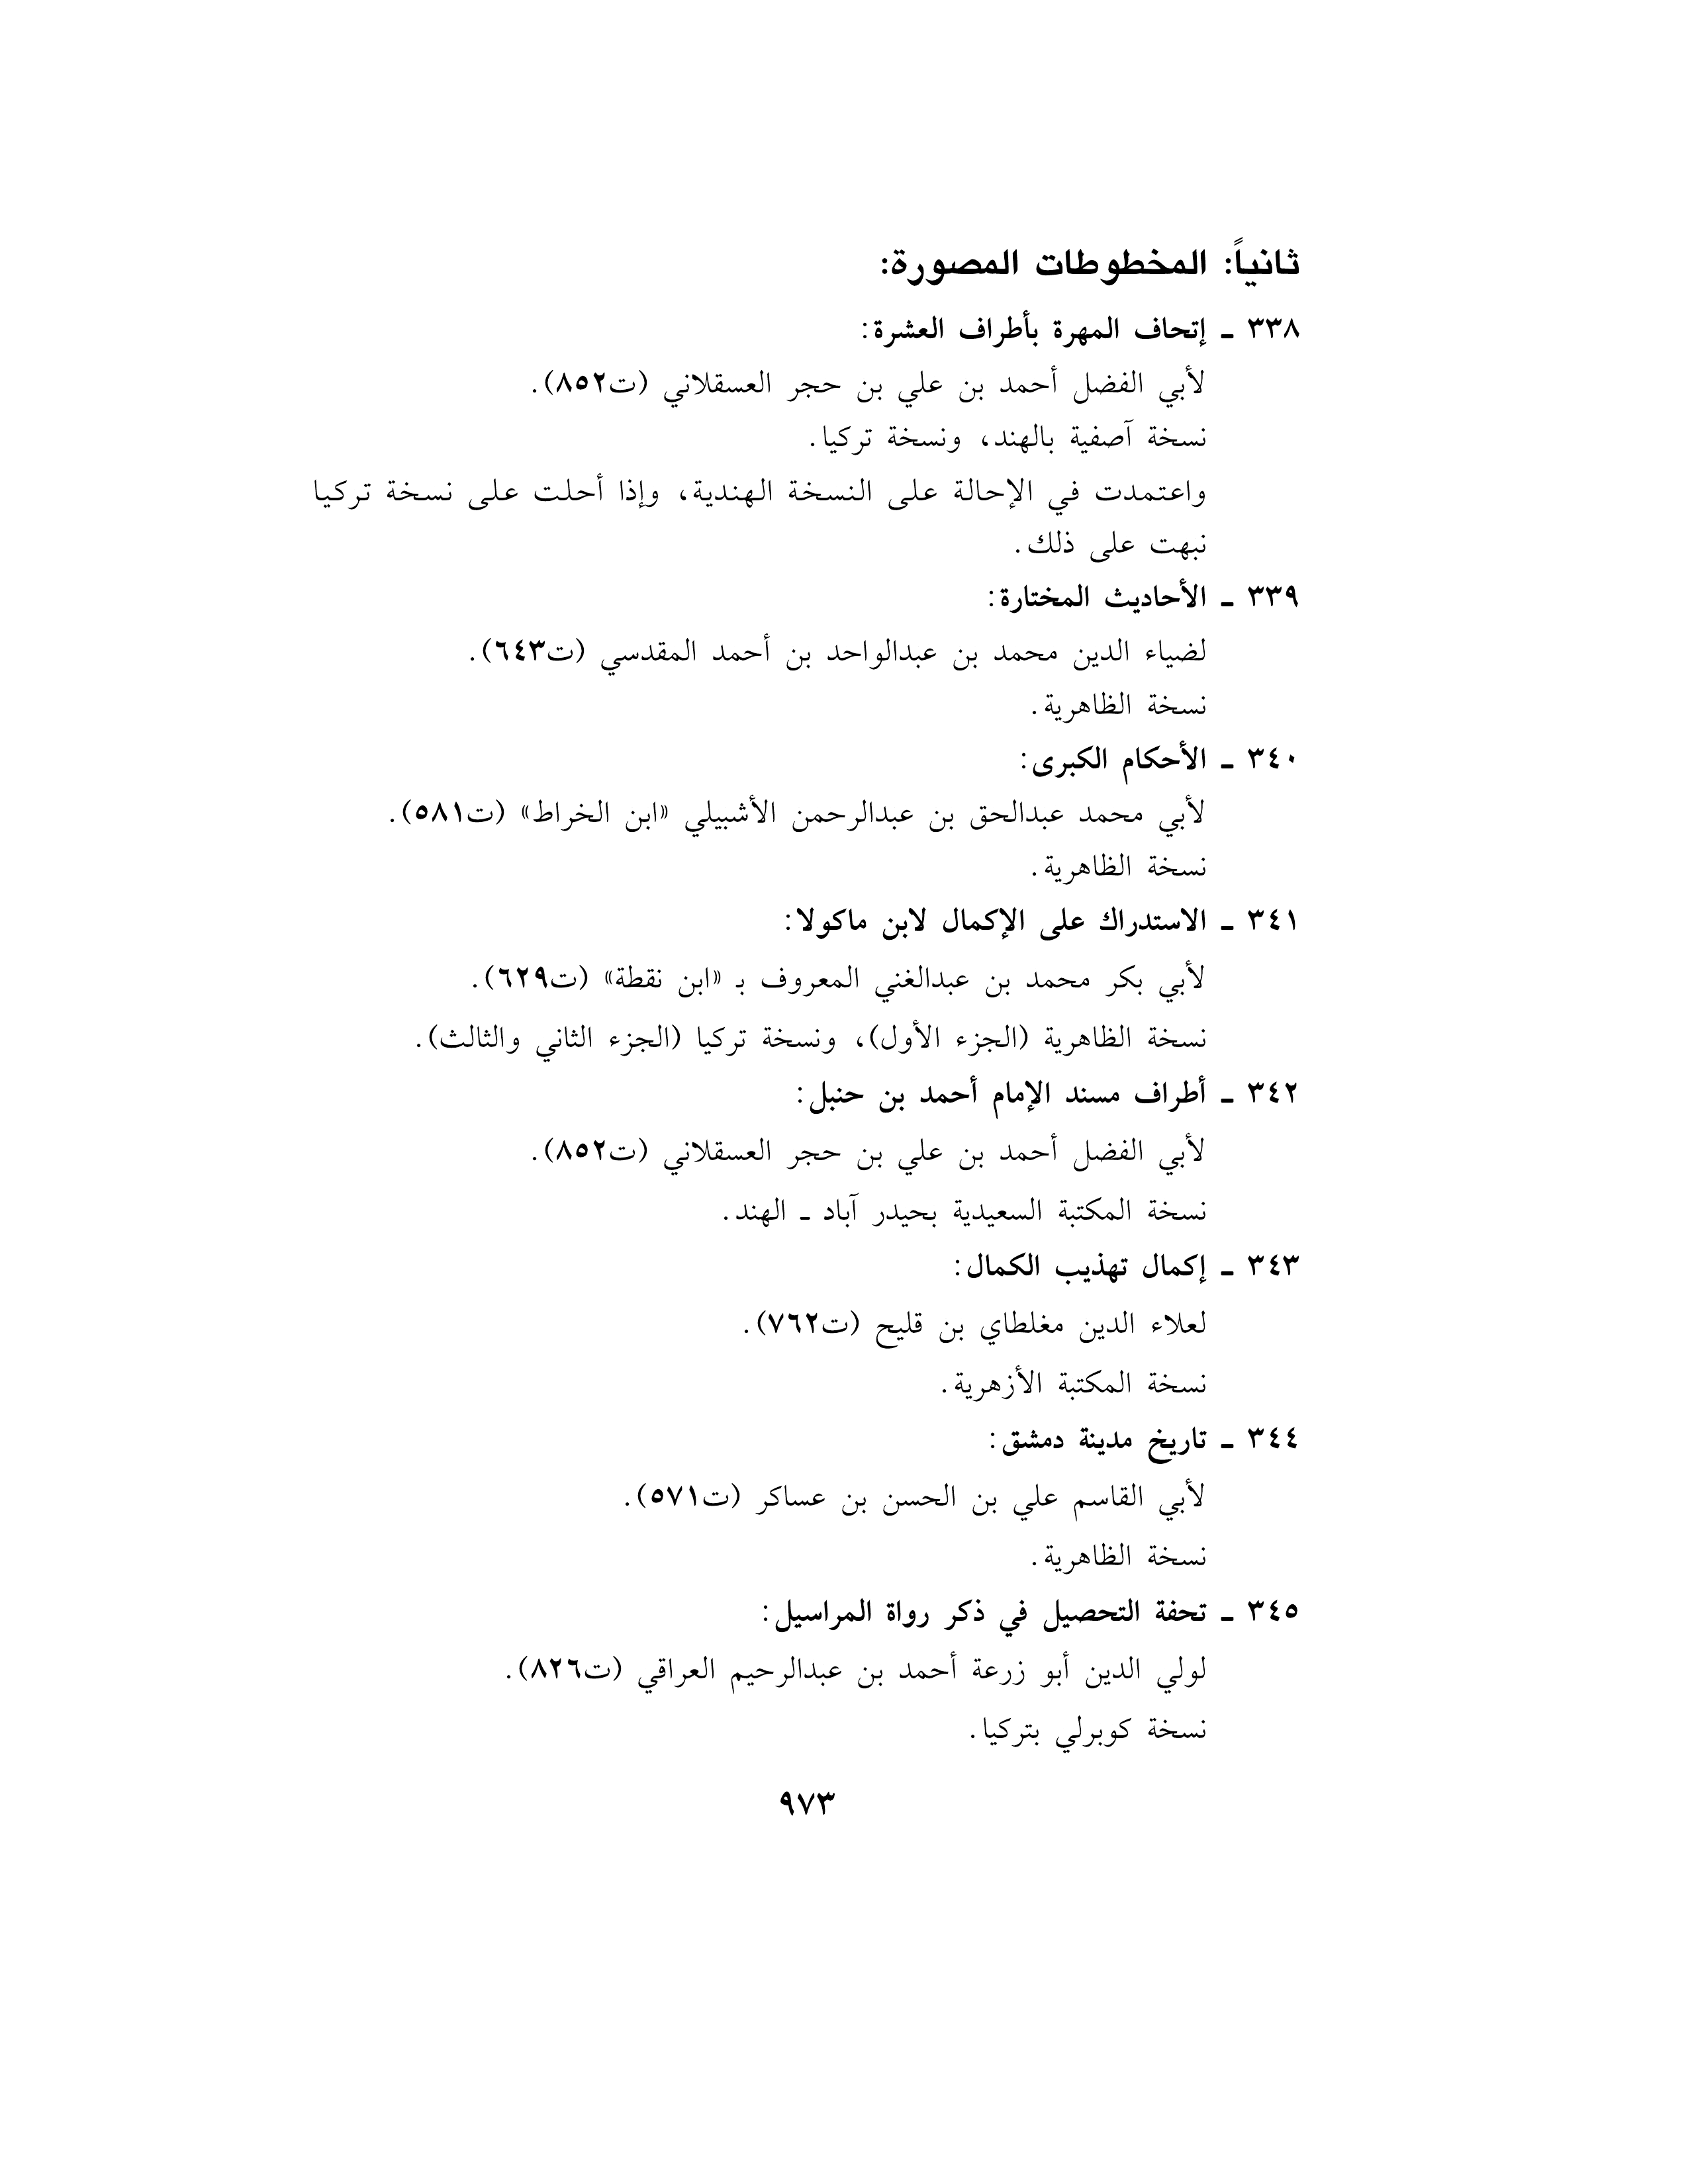 ثانياً: المخطوطات المصورة:
٣٣٨ ـ إتحاف المهرة بأطراف العشرة:
لأبي الفضل أحمد بن علي بن حجر العسقلاني (ت٨٥٢).
نسخة آصفية بالهند، ونسخة تركيا.
واعتمدت في الإحالة على النسخة الهندية، وإذا أحلت على نسخة تركيا
نبهت على ذلك.
٣٣٩ ـ الأحاديث المختارة:
لضياء الدين محمد بن عبدالواحد بن أحمد المقدسي (ت٦٤٣).
نسخة الظاهرية.
٣٤٠ ـ الأحكام الكبرى:
لأبي محمد عبدالحق بن عبدالرحمن الأشبيلي «ابن الخراط» (ت٥٨١).
نسخة الظاهرية.
٣٤١ ـ الاستدراك على الإكمال لابن ماكولا:
لأبي بكر محمد بن عبدالغني المعروف بـ «ابن نقطة» (ت٦٢٩).
نسخة الظاهرية (الجزء الأول)، ونسخة تركيا (الجزء الثاني والثالث).
٣٤٢ ـ أطراف مسند الإمام أحمد بن حنبل:
لأبي الفضل أحمد بن علي بن حجر العسقلاني (ت٨٥٢).
نسخة المكتبة السعيدية بحيدر آباد ـ الهند.
٣٤٣ ـ إكمال تهذيب الكمال:
لعلاء الدين مغلطاي بن قليح (ت٧٦٢).
نسخة المكتبة الأزهرية.
٣٤٤ ـ تاريخ مدينة دمشق:
لأبي القاسم علي بن الحسن بن عساكر (ت٥٧١).
نسخة الظاهرية.
٣٤٥ ـ تحفة التحصيل في ذكر رواة المراسيل:
لولي الدين أبو زرعة أحمد بن عبدالرحيم العراقي (ت٨٢٦).
نسخة كوبرلي بتركيا.
٩٧٣